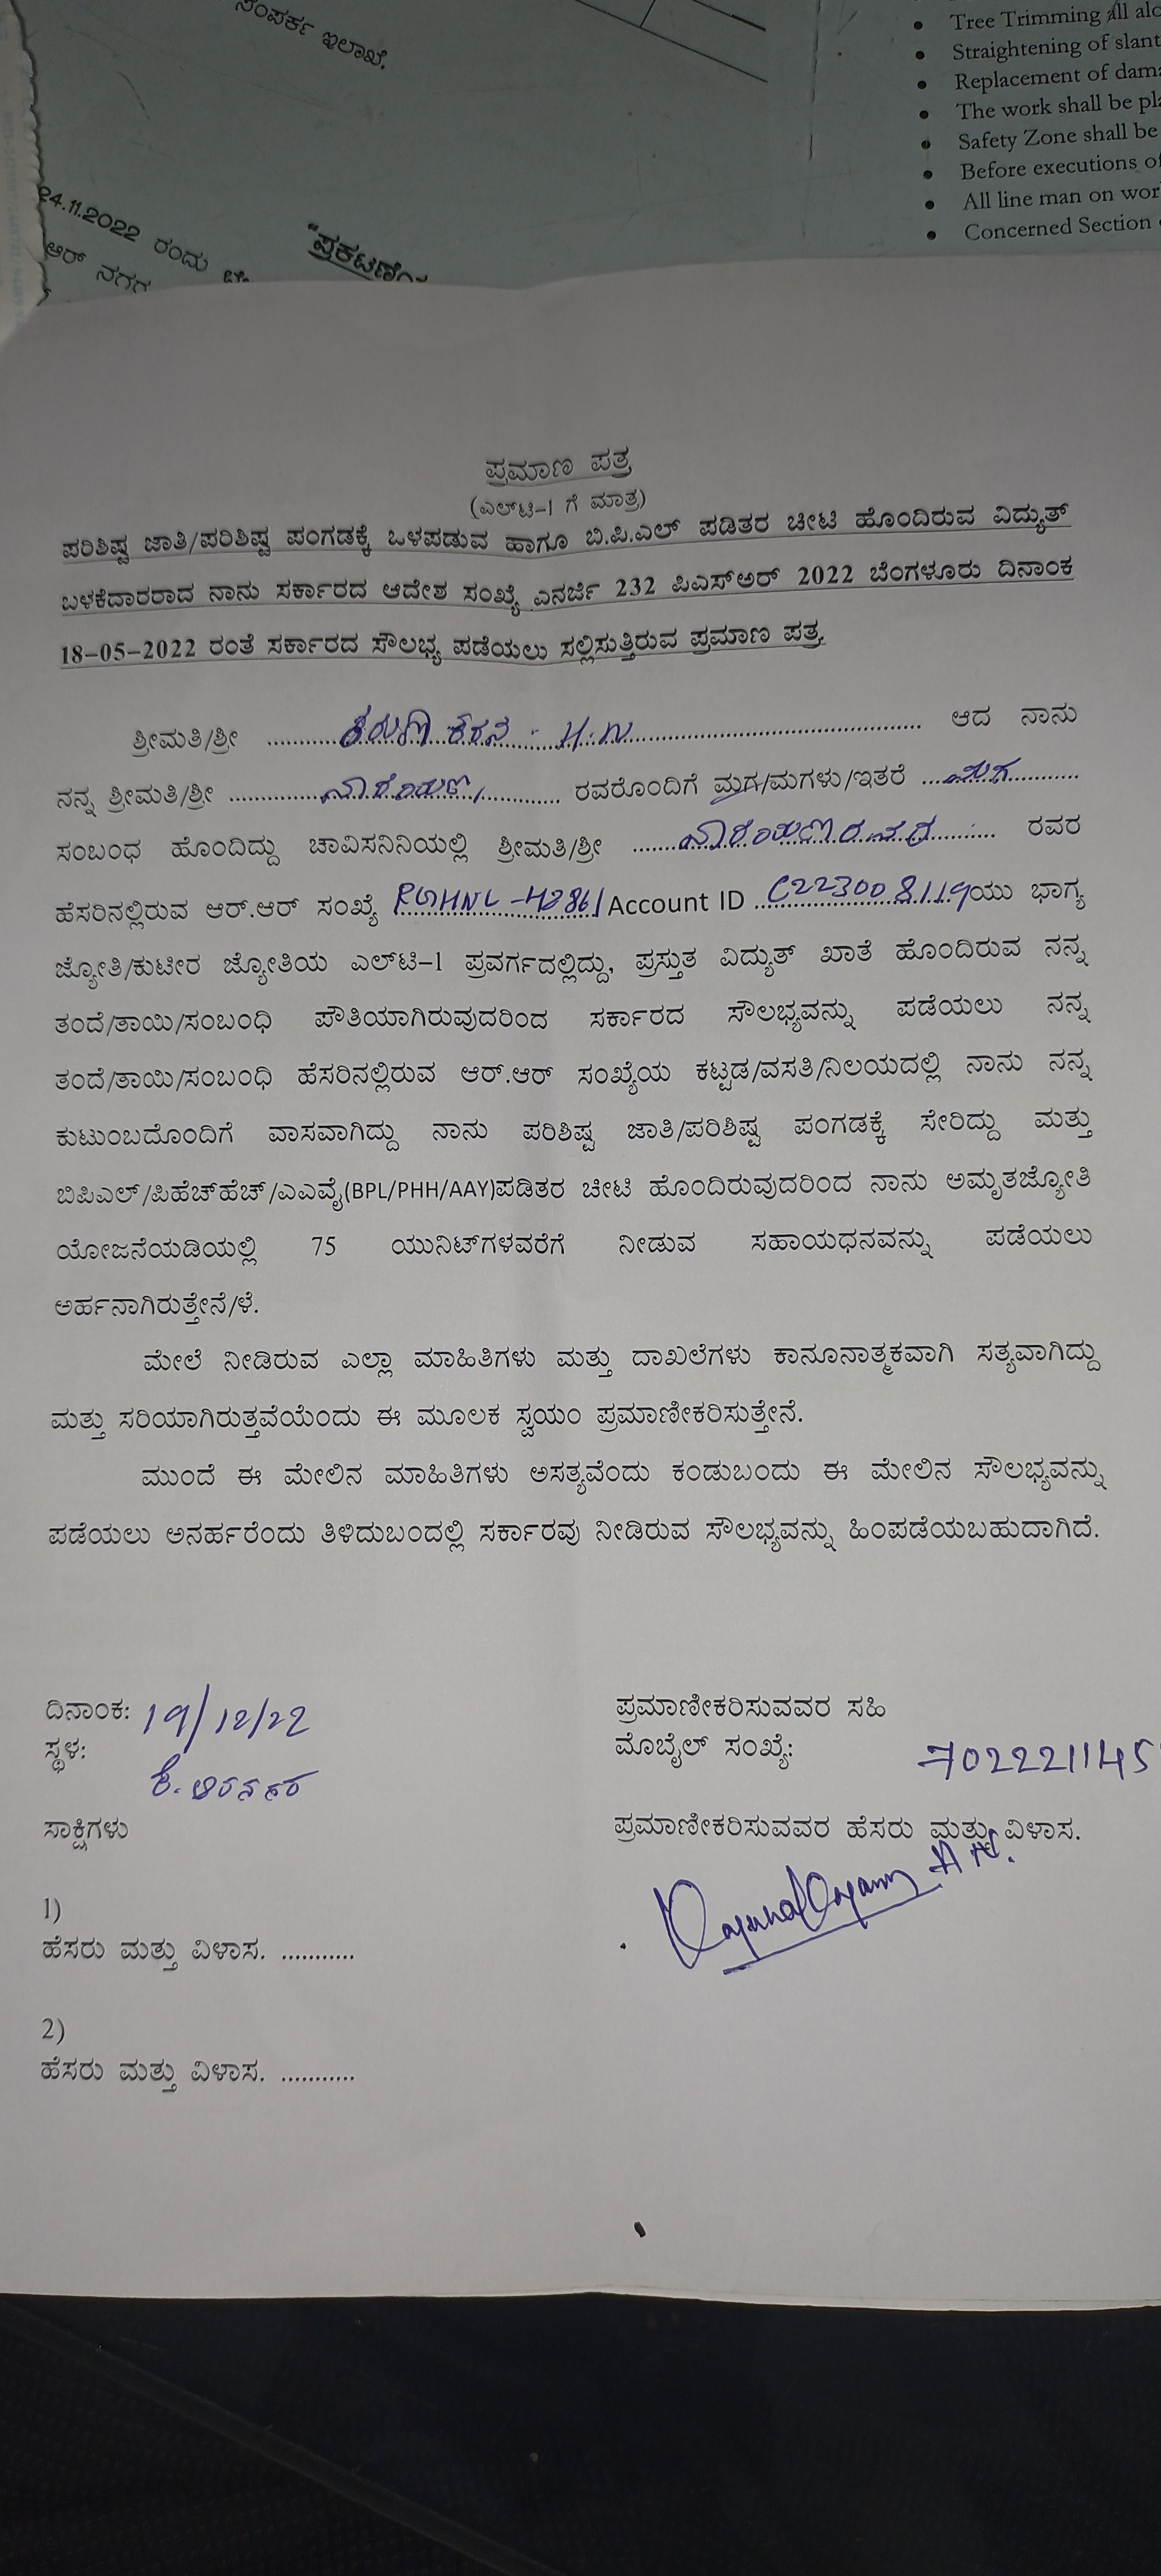 ಸಂಪರ್ಕ ಇಲಾಖೆ.
24.11.2022 ರಂದು
ಆರ್ ನಗರ
"ಪ್ರಕಟಣೆ
Tree Trimming all
Straightening of
Replacement of
The work shall be
Safety Zone shall be
Before executions of
All line man on
Concerned Section
ಪ್ರಮಾಣ ಪತ್ರ
(ಎಲ್‌ಟಿ-1 ಗೆ ಮಾತ್ರ)
ಪರಿಶಿಷ್ಟ ಜಾತಿ/ಪರಿಶಿಷ್ಟ ಪಂಗಡಕ್ಕೆ ಒಳಪಡುವ ಹಾಗೂ ಬಿ.ಪಿ.ಎಲ್ ಪಡಿತರ ಚೀಟಿ ಹೊಂದಿರುವ ವಿದ್ಯುತ್
ಬಳಕೆದಾರರಾದ ನಾನು ಸರ್ಕಾರದ ಆದೇಶ ಸಂಖ್ಯೆ ಎನರ್ಜಿ 232 ಪಿಎಸ್‌ಆರ್ 2022 ಬೆಂಗಳೂರು ದಿನಾಂಕ
18-05-2022 ರಂತೆ ಸರ್ಕಾರದ ಸೌಲಭ್ಯ ಪಡೆಯಲು ಸಲ್ಲಿಸುತ್ತಿರುವ ಪ್ರಮಾಣ ಪತ್ರ
ಶ್ರೀಮತಿ/ಶ್ರೀ .......... H.N .......... ಆದ ನಾನು
ನನ್ನ ಶ್ರೀಮತಿ/ಶ್ರೀ .......... ನಾರಾಯಣ .......... ರವರೊಂದಿಗೆ ಮಗ/ಮಗಳು/ಇತರೆ ... ಮಗ ..........
ಸಂಬಂಧ ಹೊಂದಿದ್ದು ಚಾವಿಸನಿನಿಯಲ್ಲಿ ಶ್ರೀಮತಿ/ಶ್ರೀ .......... ರವರ
ಹೆಸರಿನಲ್ಲಿರುವ ಆರ್.ಆರ್ ಸಂಖ್ಯೆ Account ID .......... ಯು ಭಾಗ್ಯ
ಜ್ಯೋತಿ/ಕುಟೀರ ಜ್ಯೋತಿಯ ಎಲ್‌ಟಿ-1 ಪ್ರವರ್ಗದಲ್ಲಿದ್ದು, ಪ್ರಸ್ತುತ ವಿದ್ಯುತ್ ಖಾತೆ ಹೊಂದಿರುವ ನನ್ನ
ತಂದೆ/ತಾಯಿ/ಸಂಬಂಧಿ ಪೌತಿಯಾಗಿರುವುದರಿಂದ ಸರ್ಕಾರದ ಸೌಲಭ್ಯವನ್ನು ಪಡೆಯಲು ನನ್ನ
ತಂದೆ/ತಾಯಿ/ಸಂಬಂಧಿ ಹೆಸರಿನಲ್ಲಿರುವ ಆರ್.ಆರ್ ಸಂಖ್ಯೆಯ ಕಟ್ಟಡ/ವಸತಿ/ನಿಲಯದಲ್ಲಿ ನಾನು ನನ್ನ
ಕುಟುಂಬದೊಂದಿಗೆ ವಾಸವಾಗಿದ್ದು ನಾನು ಪರಿಶಿಷ್ಟ ಜಾತಿ/ಪರಿಶಿಷ್ಟ ಪಂಗಡಕ್ಕೆ ಸೇರಿದ್ದು ಮತ್ತು
ಬಿಪಿಎಲ್/ಪಿಹೆಚ್‌ಹೆಚ್/ಎಎವೈ(BPL/PHH/AAY)ಪಡಿತರ ಚೀಟಿ ಹೊಂದಿರುವುದರಿಂದ ನಾನು ಅಮೃತಜ್ಯೋತಿ
ಯೋಜನೆಯಡಿಯಲ್ಲಿ 75 ಯುನಿಟ್‌ಗಳವರೆಗೆ ನೀಡುವ ಸಹಾಯಧನವನ್ನು ಪಡೆಯಲು
ಅರ್ಹನಾಗಿರುತ್ತೇನೆ/ಳೆ.
ಮೇಲೆ ನೀಡಿರುವ ಎಲ್ಲಾ ಮಾಹಿತಿಗಳು ಮತ್ತು ದಾಖಲೆಗಳು ಕಾನೂನಾತ್ಮಕವಾಗಿ ಸತ್ಯವಾಗಿದ್ದು
ಮತ್ತು ಸರಿಯಾಗಿರುತ್ತವೆಯೆಂದು ಈ ಮೂಲಕ ಸ್ವಯಂ ಪ್ರಮಾಣೀಕರಿಸುತ್ತೇನೆ.
ಮುಂದೆ ಈ ಮೇಲಿನ ಮಾಹಿತಿಗಳು ಅಸತ್ಯವೆಂದು ಕಂಡುಬಂದು ಈ ಮೇಲಿನ ಸೌಲಭ್ಯವನ್ನು
ಪಡೆಯಲು ಅನರ್ಹರೆಂದು ತಿಳಿದುಬಂದಲ್ಲಿ ಸರ್ಕಾರವು ನೀಡಿರುವ ಸೌಲಭ್ಯವನ್ನು ಹಿಂಪಡೆಯಬಹುದಾಗಿದೆ.
ದಿನಾಂಕ: 19/12/22
ಸ್ಥಳ:
ಪ್ರಮಾಣೀಕರಿಸುವವರ ಸಹಿ
ಮೊಬೈಲ್ ಸಂಖ್ಯೆ: 702221145
ಸಾಕ್ಷಿಗಳು
ಪ್ರಮಾಣೀಕರಿಸುವವರ ಹೆಸರು ಮತ್ತು ವಿಳಾಸ.
1)
ಹೆಸರು ಮತ್ತು ವಿಳಾಸ. ...........
2)
ಹೆಸರು ಮತ್ತು ವಿಳಾಸ. ...........